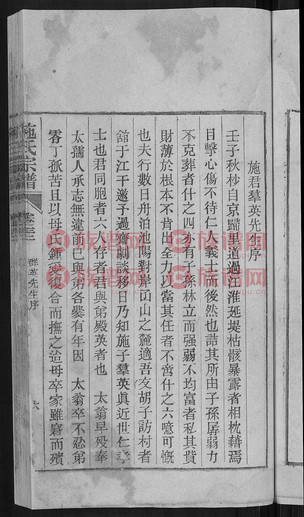 施君羣英先生序
壬子秋杪自京歸里道過江淮延堤枯骸暴露者相枕藉焉
目擊心傷不待仁人義士而後然也詰其所由子孫孱弱力
不克葬者什之四亦有子孫林立而强弱不均富者吝私其貲
財薄於根本不肯出全力以當其任者不啻什之六噫可慨
也夫行數日舟泊池陽對岸 山之麓適吾友胡子訪村者
舘于江干邀予過齋劇談移日乃知施子羣英眞近世仁 
士也君同胞者六人存者君與弟殿英者也 太翁早殁奉
太孺人承志無違而已與弟各爨有年因 太翁卒不忍弟
零丁孤苦且以母氏鍾愛合而撫之迨母卒家雖窘而殯
施氏宗譜
卷三
羣英先生序
六